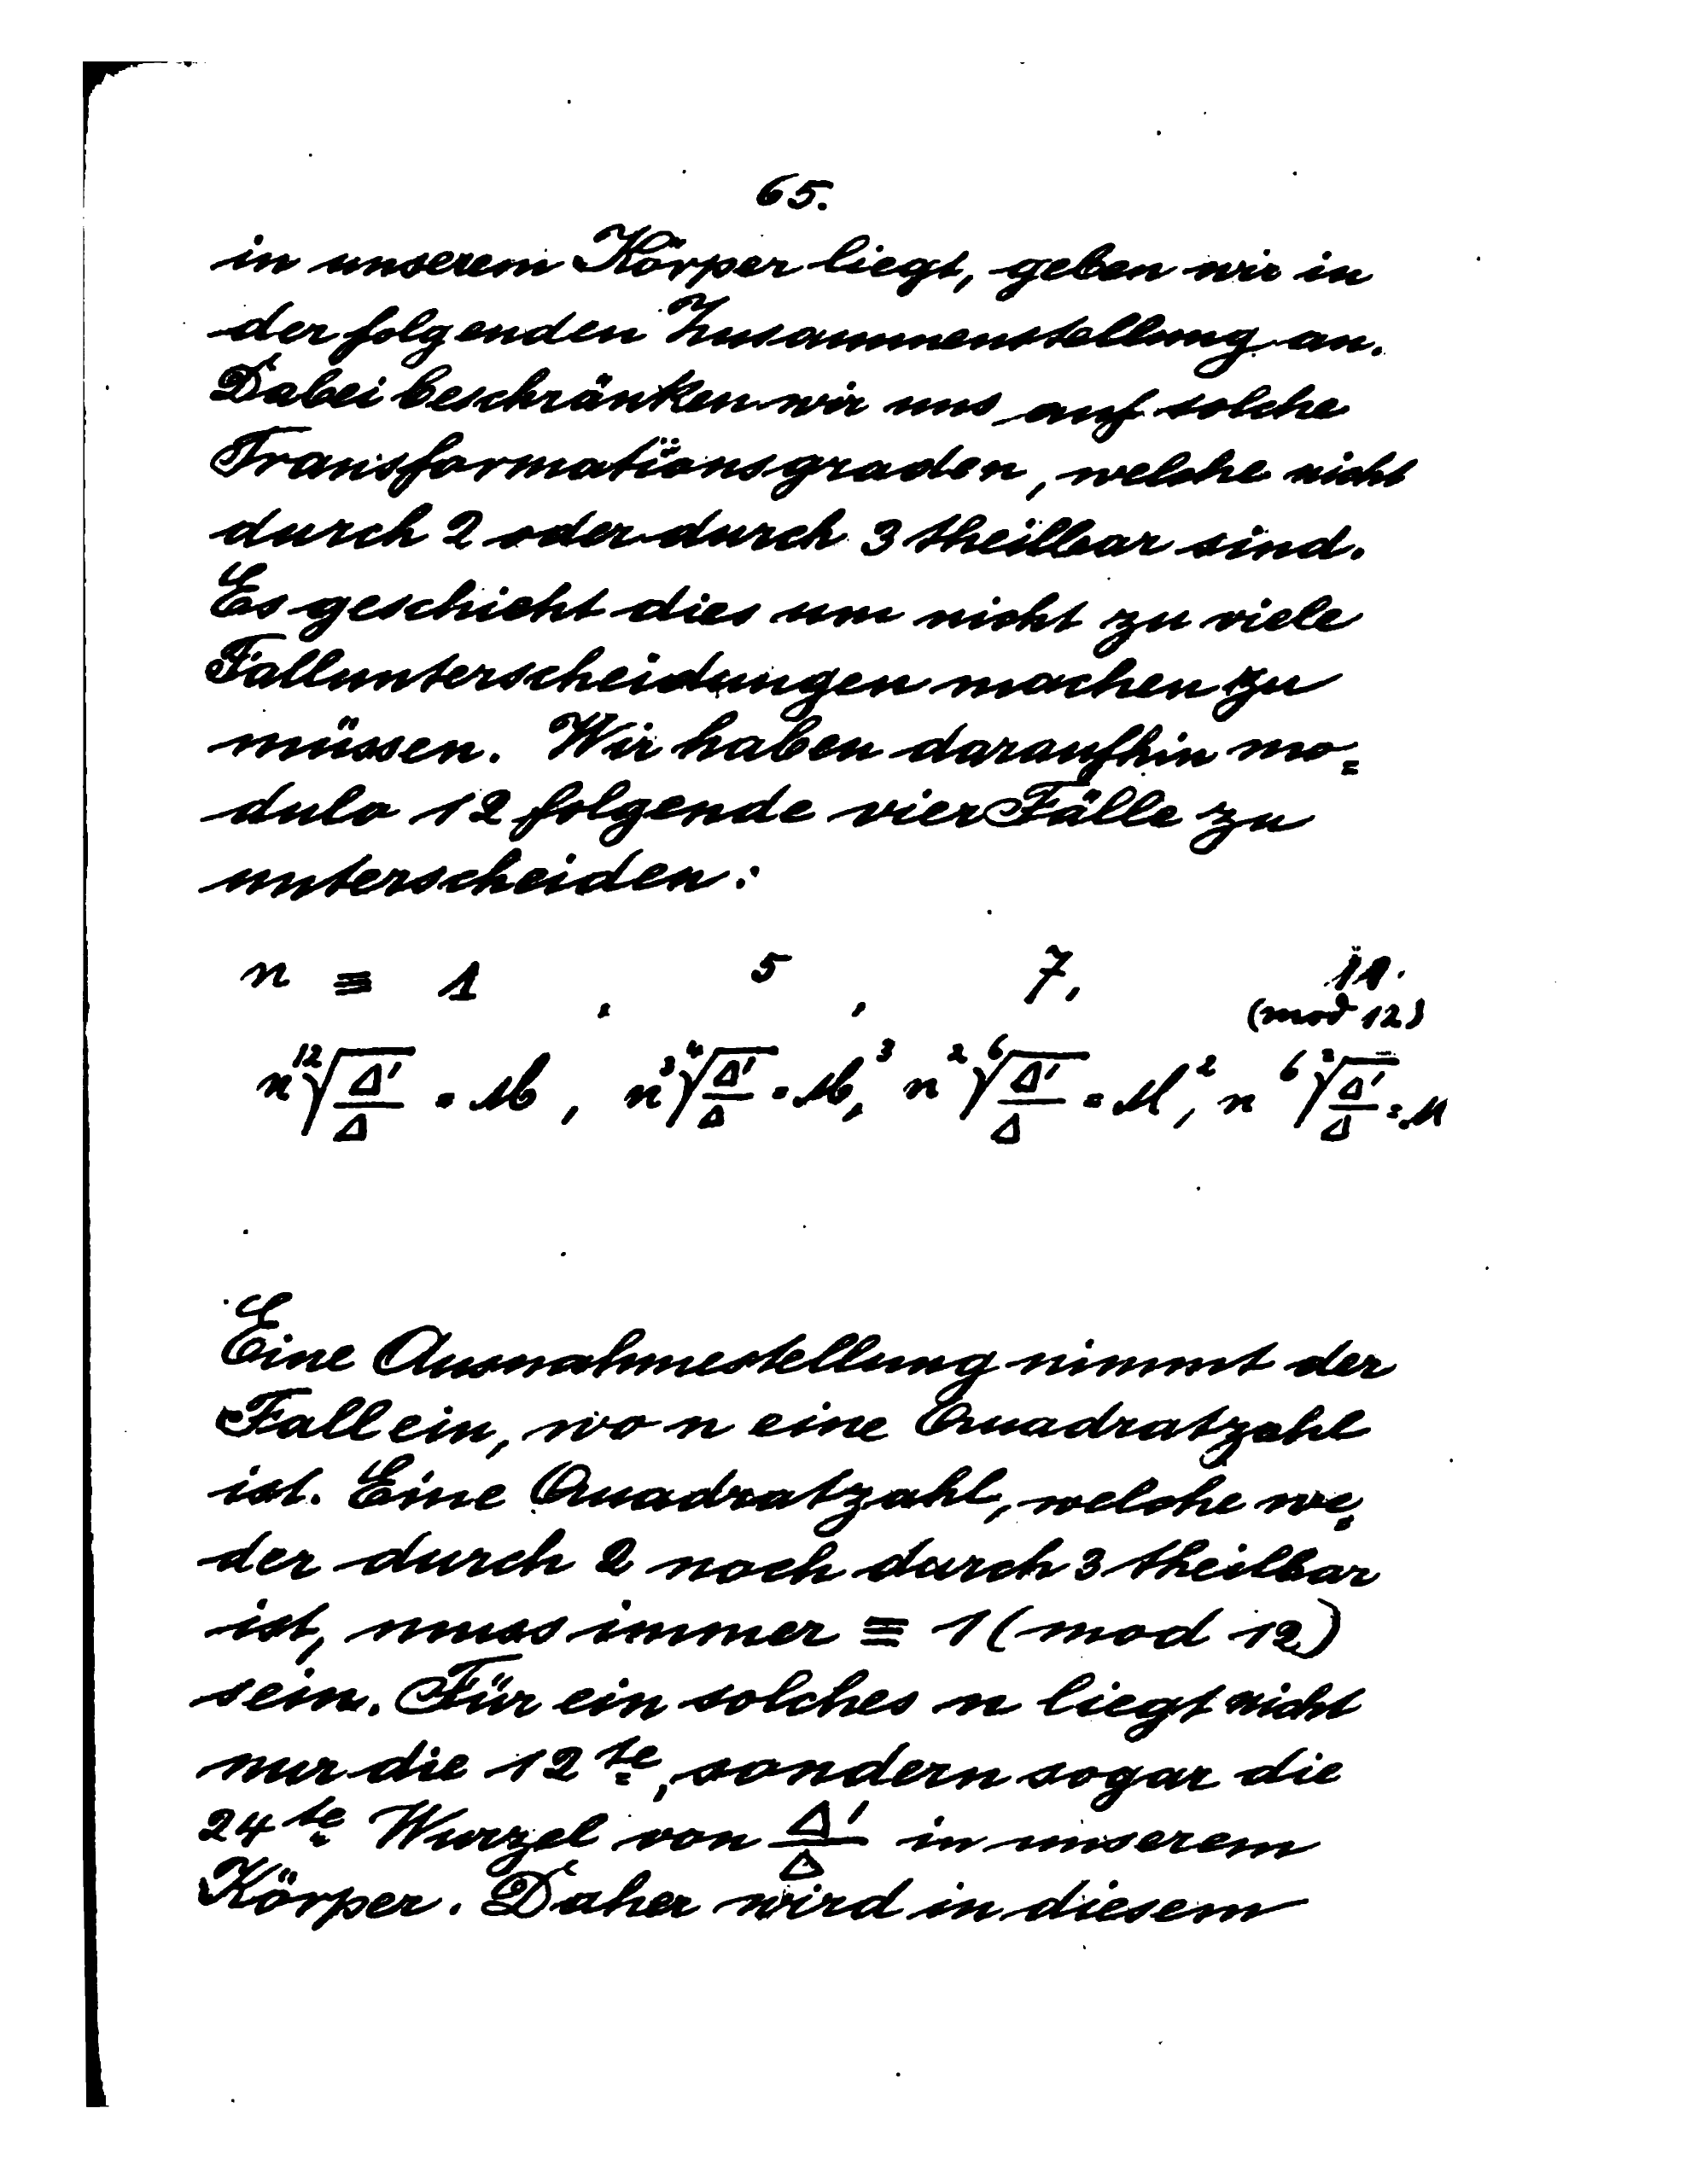 65.
in unserem Körper liegt, geben wir in
der folgenden Zusammenstellung an.
Dabei beschränken wir uns auf solche
Transformationsgraden, welche nicht
durch 2 oder durch 3 theilbar sind.
Es geschieht dies um nicht zu viele
Fallunterscheidungen machen zu
müssen. Wir haben daraufhin mo=
dulo 12 folgende vier Fälle zu
unterscheiden:
n ≡ 1 , 5 , 7, 11.
(mod 12)
n ¹²√(Δ'/Δ) = M, n³ ⁴√(Δ'/Δ) = M³, n² ⁶√(Δ'/Δ) = M², n⁶ ²√(Δ'/Δ) = M
Eine Ausnahmestellung nimmt der
Fall ein, wo n eine Quadratzahl
ist. Eine Quadratzahl, welche we=
der durch 2 noch durch 3 theilbar
ist, muss immer ≡ 1 (mod 12)
sein. Für ein solches n liegt nicht
nur die 12te, sondern sogar die
24te Wurzel von Δ'/Δ in unserem
Körper. Daher wird in diesem